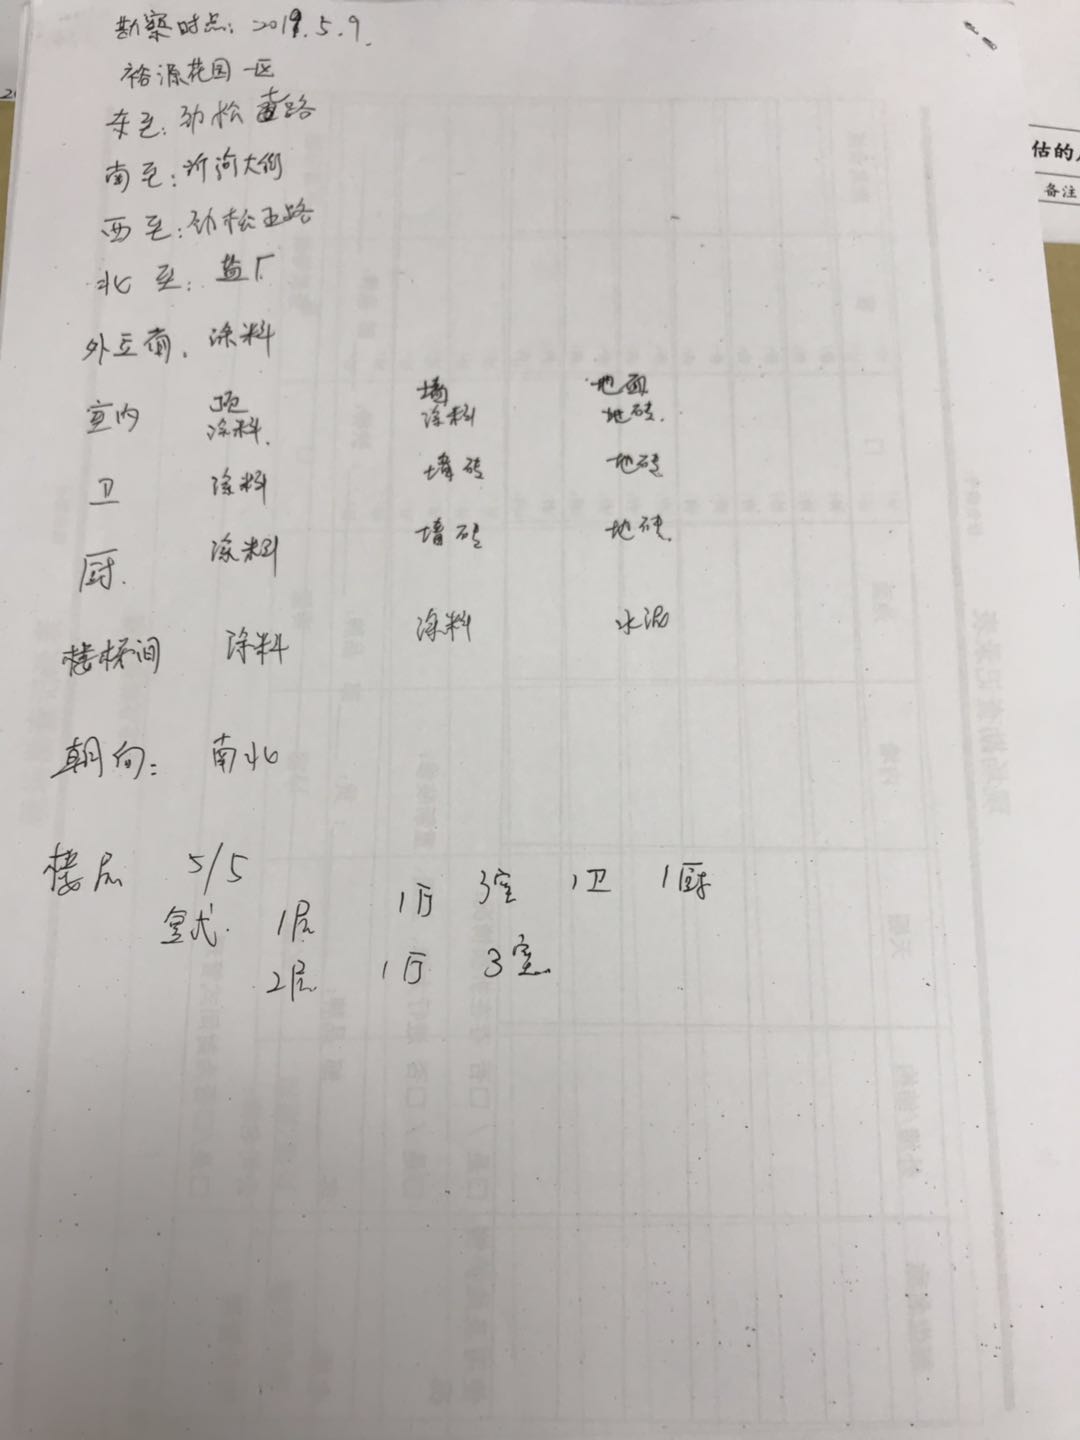 勘察时点：2019.5.9.
裕源花园一区
东至：劲松直路
南至：沂河大街
西至：劲松五路
北至：盐厂
外立面：涂料
顶 墙 地面
室内 涂料. 涂料 地砖.
卫 涂料 墙砖 地砖
厨. 涂料 墙砖 地砖.
楼梯间 涂料 涂料 水泥
朝向： 南北
楼层 5/5
复式. 1层 1厅 3室 1卫 1厨
2层 1厅 3室
估的
备注